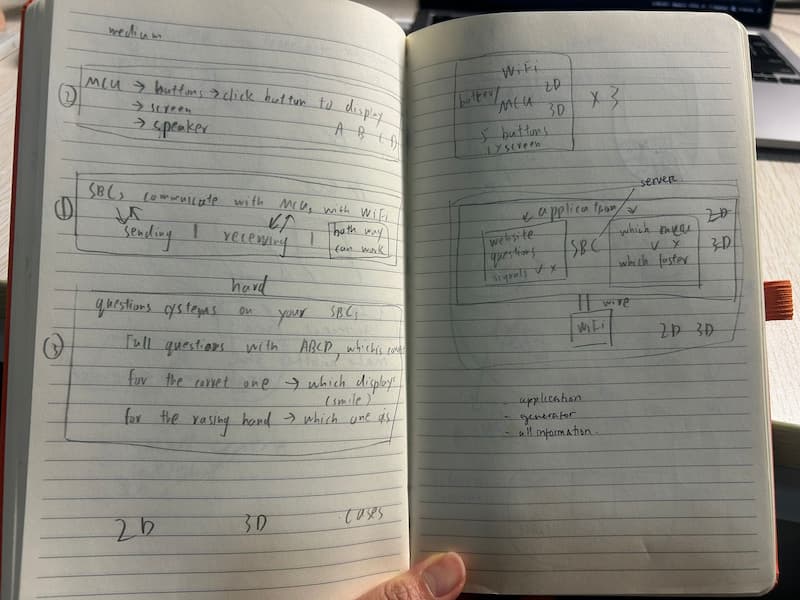 medium
② MCU → buttons → click button to display
→ screen
→ speaker A B C D
① SBCs communicate with MCUs with WiFi
sending | receiving | both way
can work
hard
questions cystems on your SBCs
③ Full questions with ABCD, which is
for the corret one → which display
(smile)
for the rasing hand → which one
2D 3D cases
WiFi
MCU 2D
3D
5 buttons
1 x screen
x 3
server
application
website
questions
signals ✓ x
SBC
which
✓ x
which faster
2D
3D
wire
WiFi
2D 3D
- application
- generator
- all information.